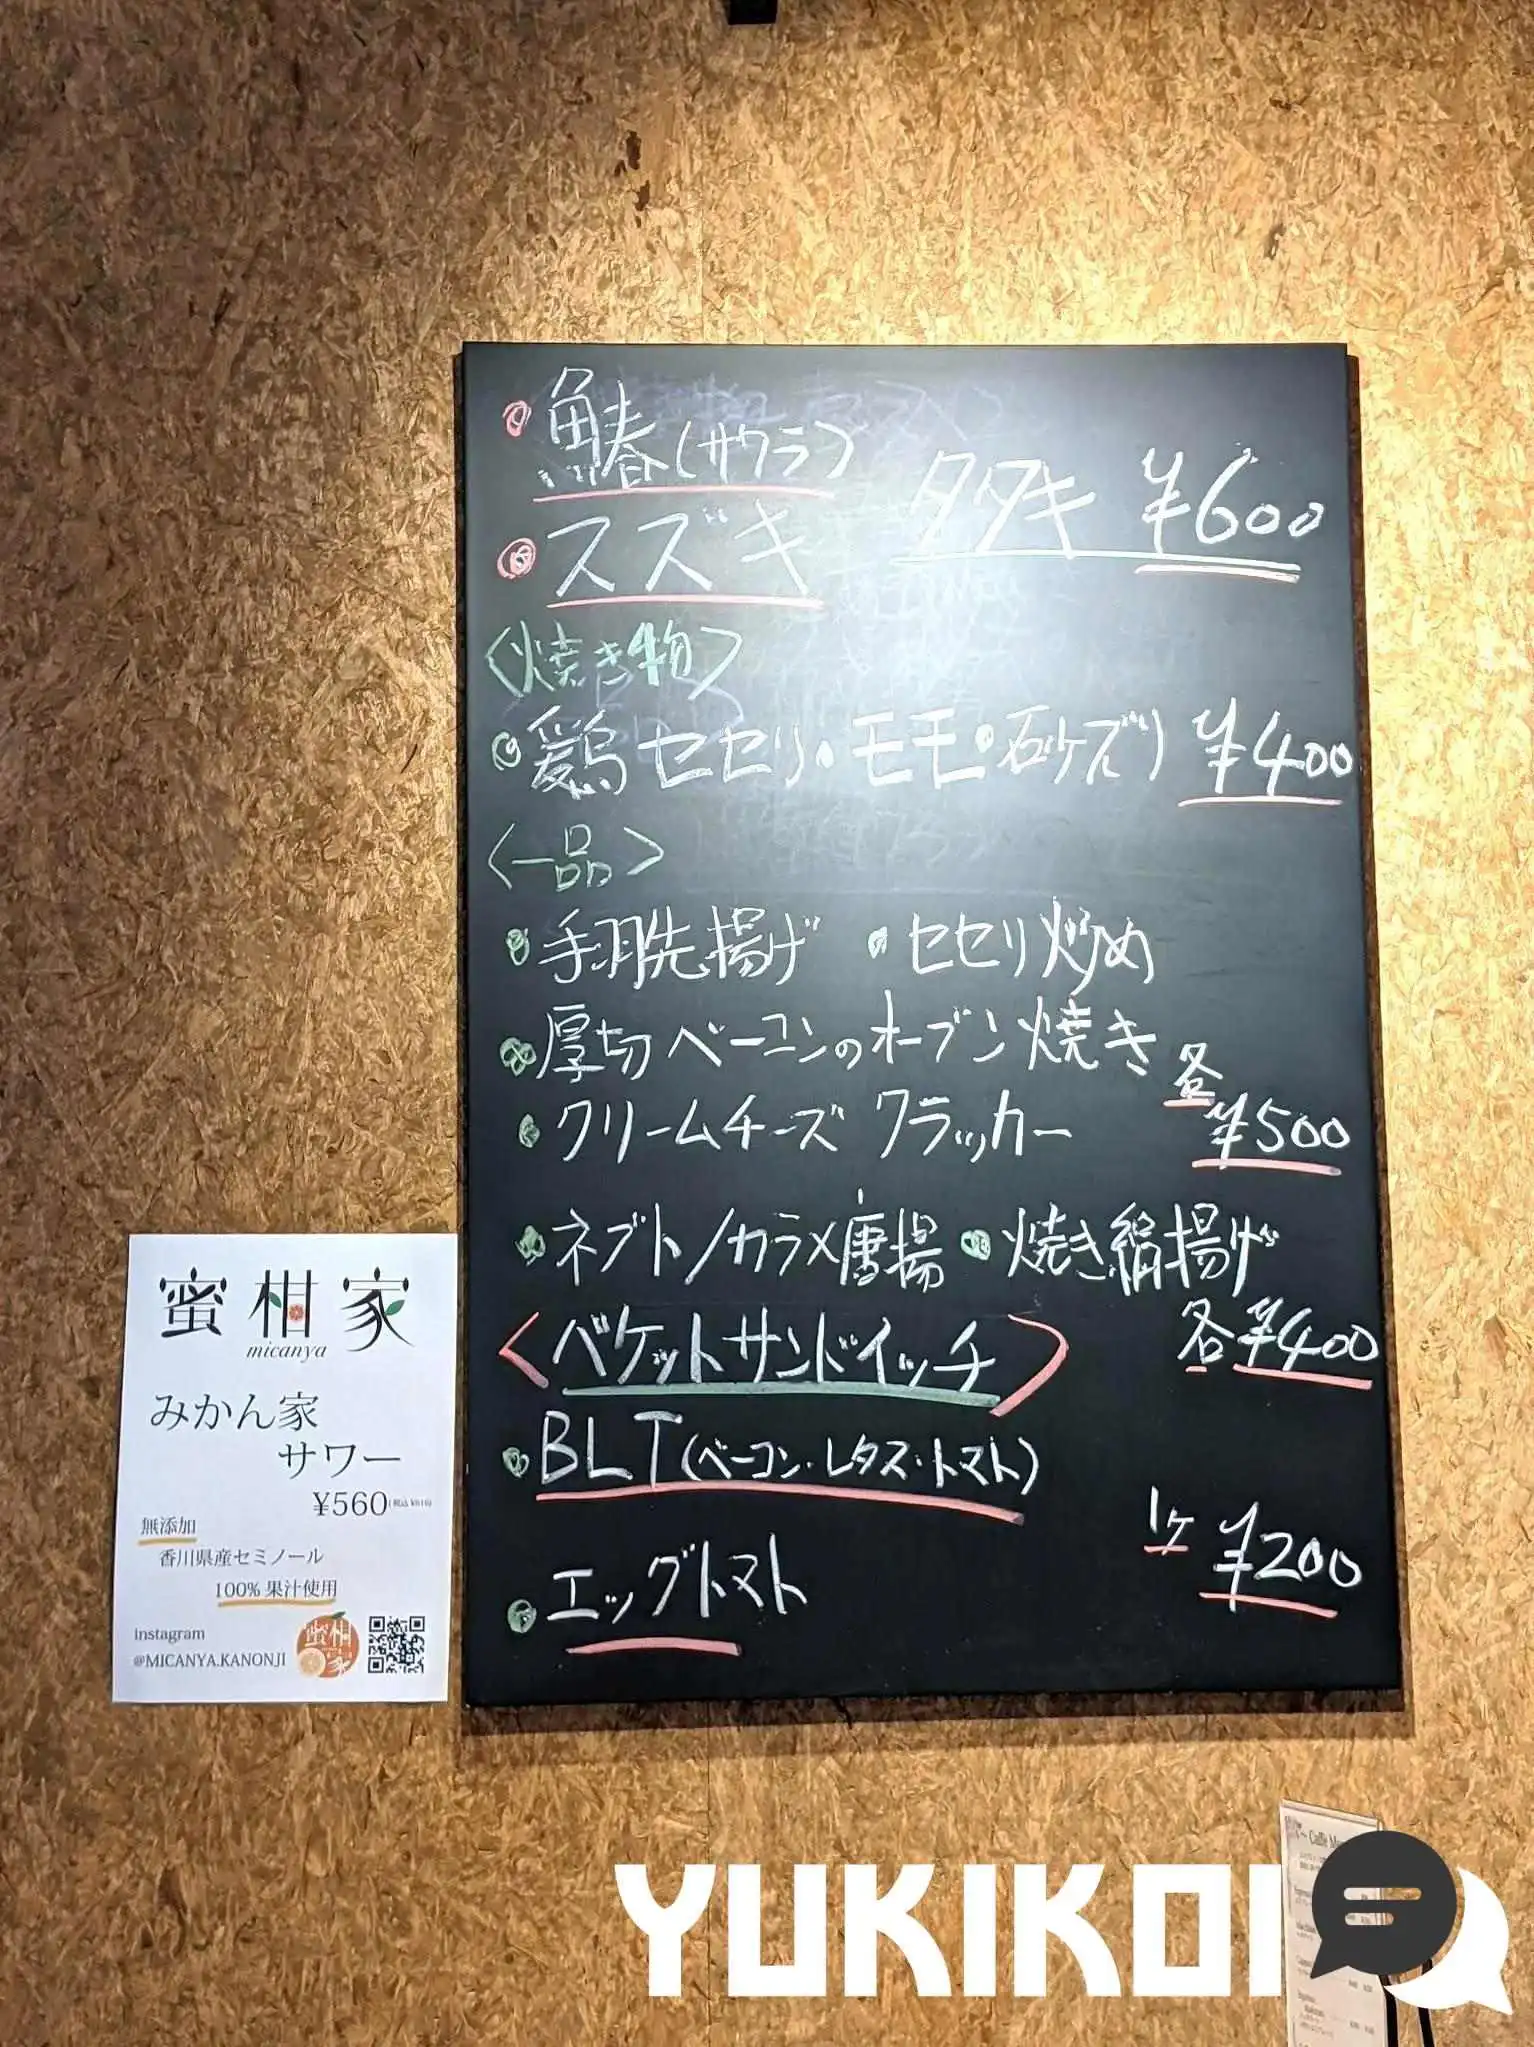 鰆(サワラ)
スズキ
タタキ ¥600
<焼き物>
鶏 セセリ・モモ・砂ズリ ¥400
<一品>
手羽先揚げ セセリ炒め
厚切ベーコンのオーブン焼き
クリームチーズ クラッカー
各 ¥500
ネブトノカラメ唐揚 焼き絹揚げ
各 ¥400
<バケットサンドイッチ>
BLT(ベーコン・レタス・トマト)
エッグトマト
1ケ ¥200
蜜柑家
micanya
みかん家
サワー
¥560(税込¥616)
無添加
香川県産セミノール
100%果汁使用
instagram
@MICANYA.KANONJI
蜜柑家
Caffè
YUKIKOI